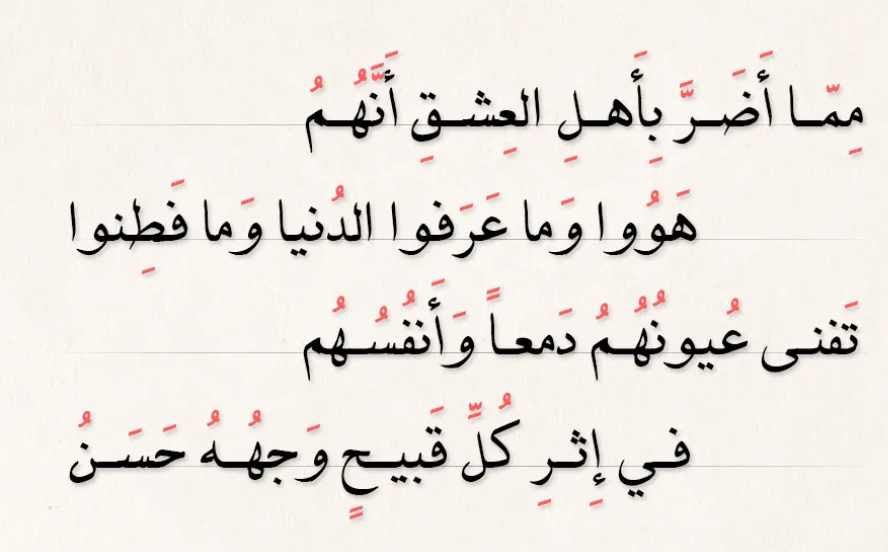 مِمّا أَضَرَّ بِأَهـلِ العِشـقِ أَنَّهُـمُ
هَوُوا وَما عَرَفوا الدُنيا وَما فَطِنوا
تَفنـى عُيونُهُـمُ دَمعـاً وَأَنفُسُـهُم
فـي إِثـرِ كُلِّ قَبيـحٍ وَجهُـهُ حَسَـنُ